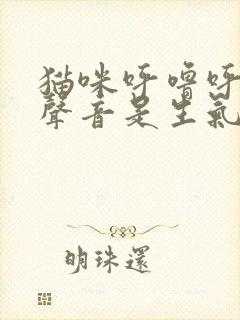 猫咪呼嚕呼
聲音是生氣
明珠還